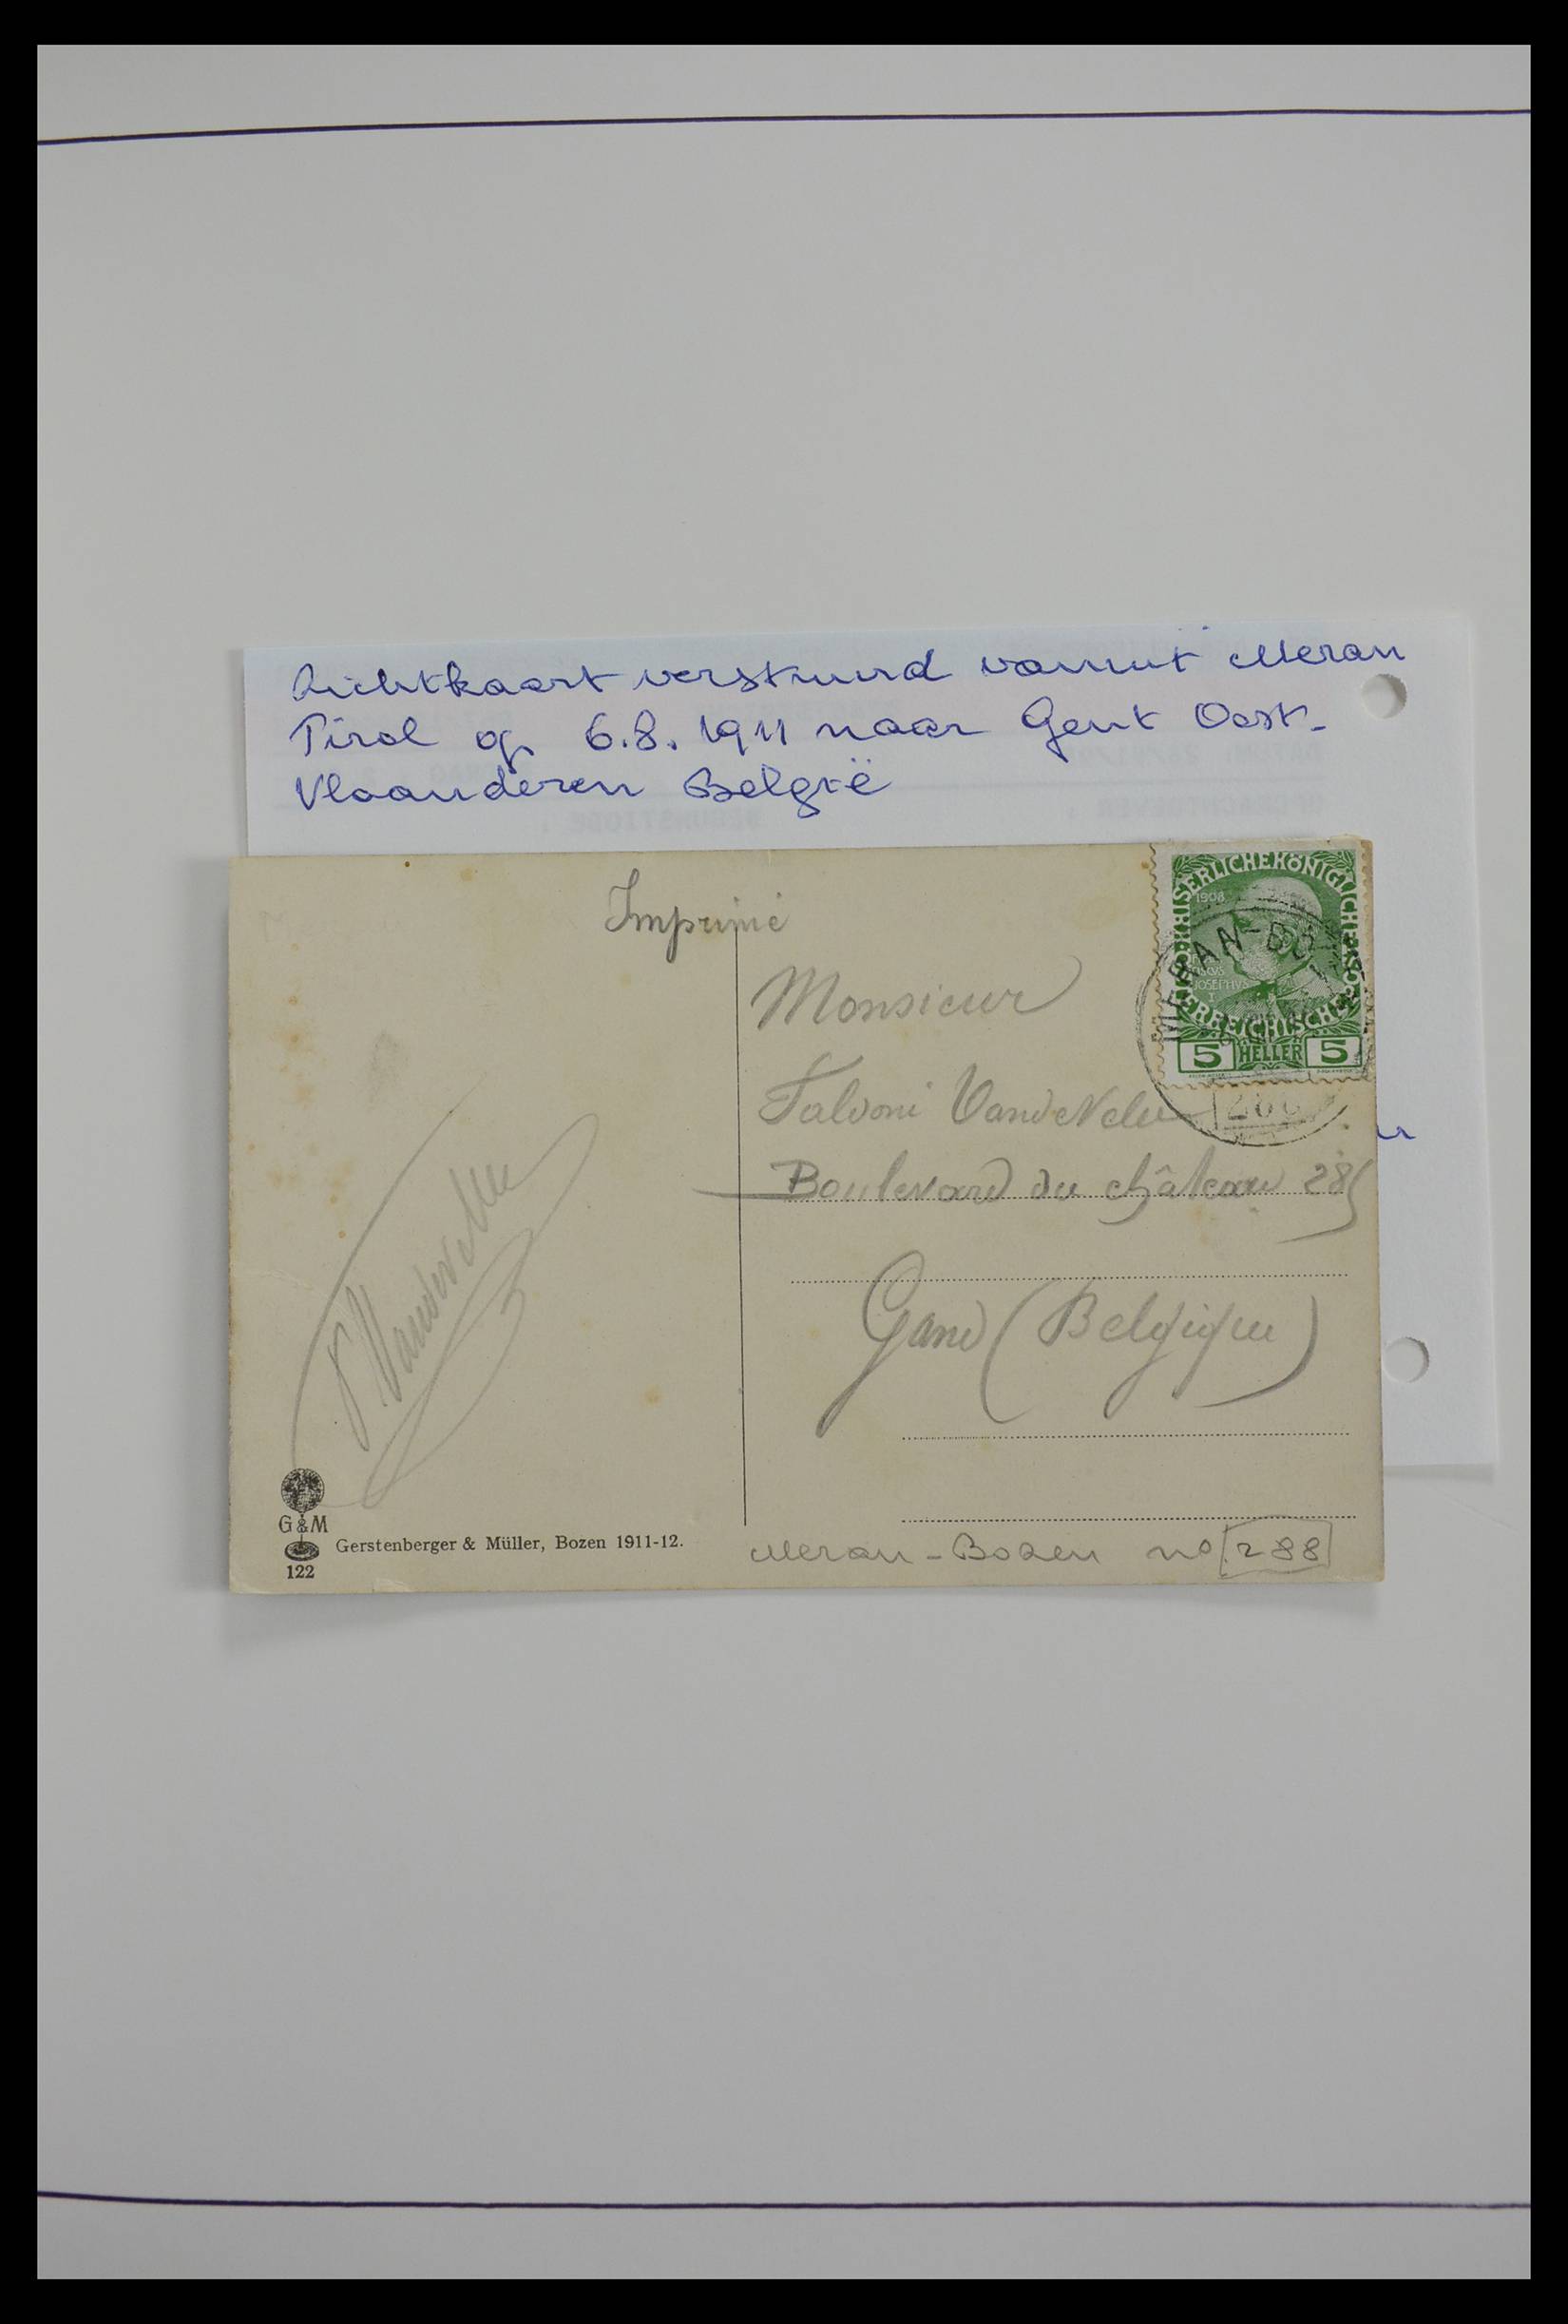 Lichtkaart verstuurd vanuit Meran
Tirol op 6.8.1911 naar Gent Oost-
Vlaanderen België
Imprimé
KAISERLICHE KÖNIGLICHE ÖSTERREICHISCHE POST
1908
JOSEPHVS
I
5 HELLER 5
MERAN-BO
Monsieur
Vandevelde
Boulevard du château 285
Gand (Belgique)
Vandevelde
G&M
122
Gerstenberger & Müller, Bozen 1911-12.
Meran-Bozen no 288